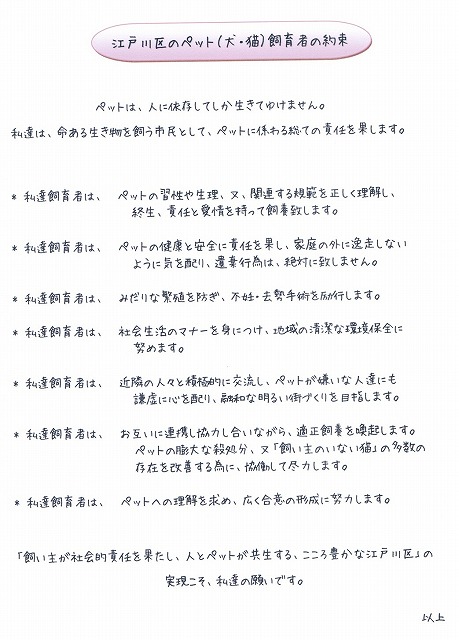 江戸川区のペット(犬・猫)飼育者の約束
ペットは、人に依存してしか生きてゆけません。
私達は、命ある生き物を飼う市民として、ペットに係わる総ての責任を果します。
* 私達飼育者は、 ペットの習性や生理、又、関連する規範を正しく理解し、
終生、責任と愛情を持って飼養致します。
* 私達飼育者は、 ペットの健康と安全に責任を果し、家庭の外に逸走しない
ように気を配り、遺棄行為は、絶対に致しません。
* 私達飼育者は、 みだりな繁殖を防ぎ、不妊・去勢手術を励行します。
* 私達飼育者は、 社会生活のマナーを身につけ、地域の清潔な環境保全に
努めます。
* 私達飼育者は、 近隣の人々と積極的に交流し、ペットが嫌いな人達にも
謙虚に心を配り、融和な明るい街づくりを目指します。
* 私達飼育者は、 お互いに連携し協力し合いながら、適正飼養を喚起します。
ペットの膨大な殺処分、又「飼い主のいない猫」の多数の
存在を改善する為に、協働して尽力します。
* 私達飼育者は、 ペットへの理解を求め、広く合意の形成に努力します。
「飼い主が社会的責任を果たし、人とペットが共生する、こころ豊かな江戸川区」の
実現こそ、私達の願いです。
以上